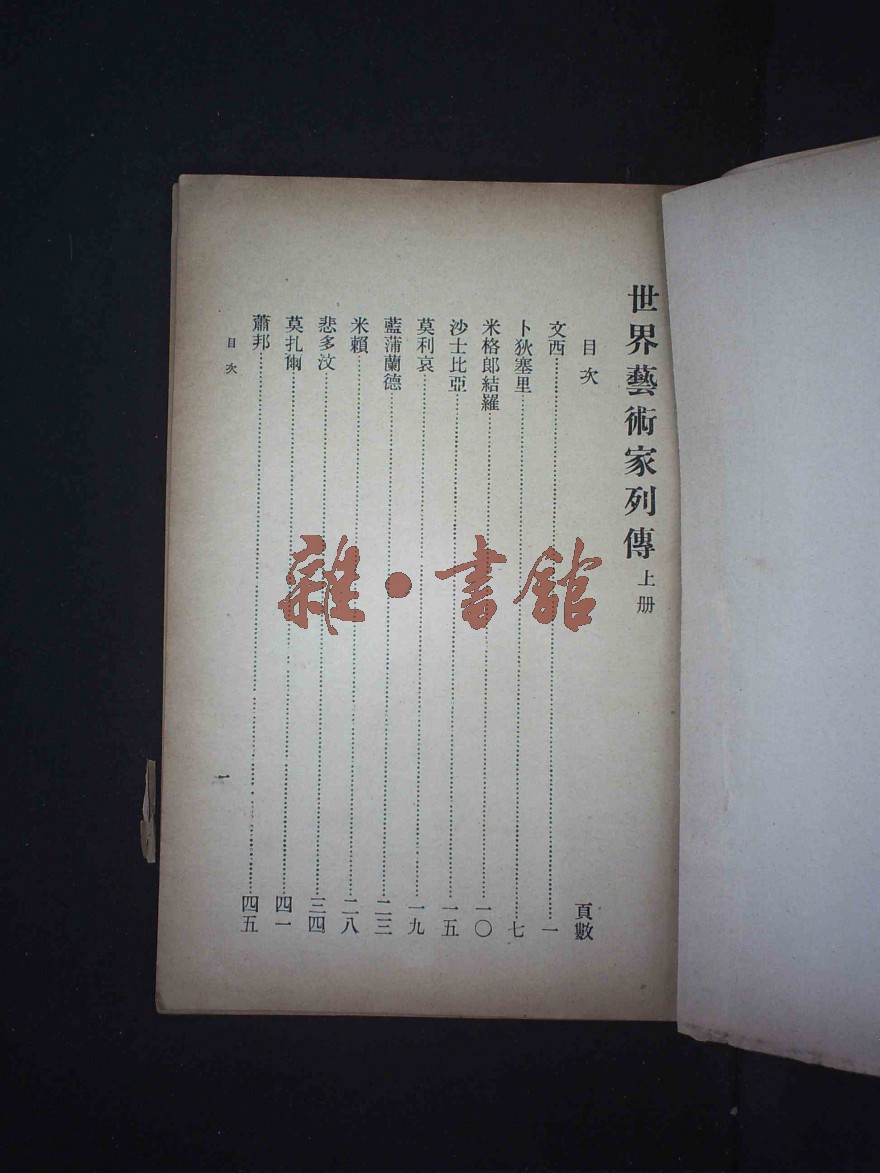 世界藝術家列傳 上册
目次 頁數
文西 一
卜狄塞里 七
米格郎結羅 一〇
沙士比亞 一五
莫利哀 一九
藍蒲蘭德 二三
米賴 二八
悲多汶 三四
莫扎爾 四一
蕭邦 四五
目次 一
雜·書館